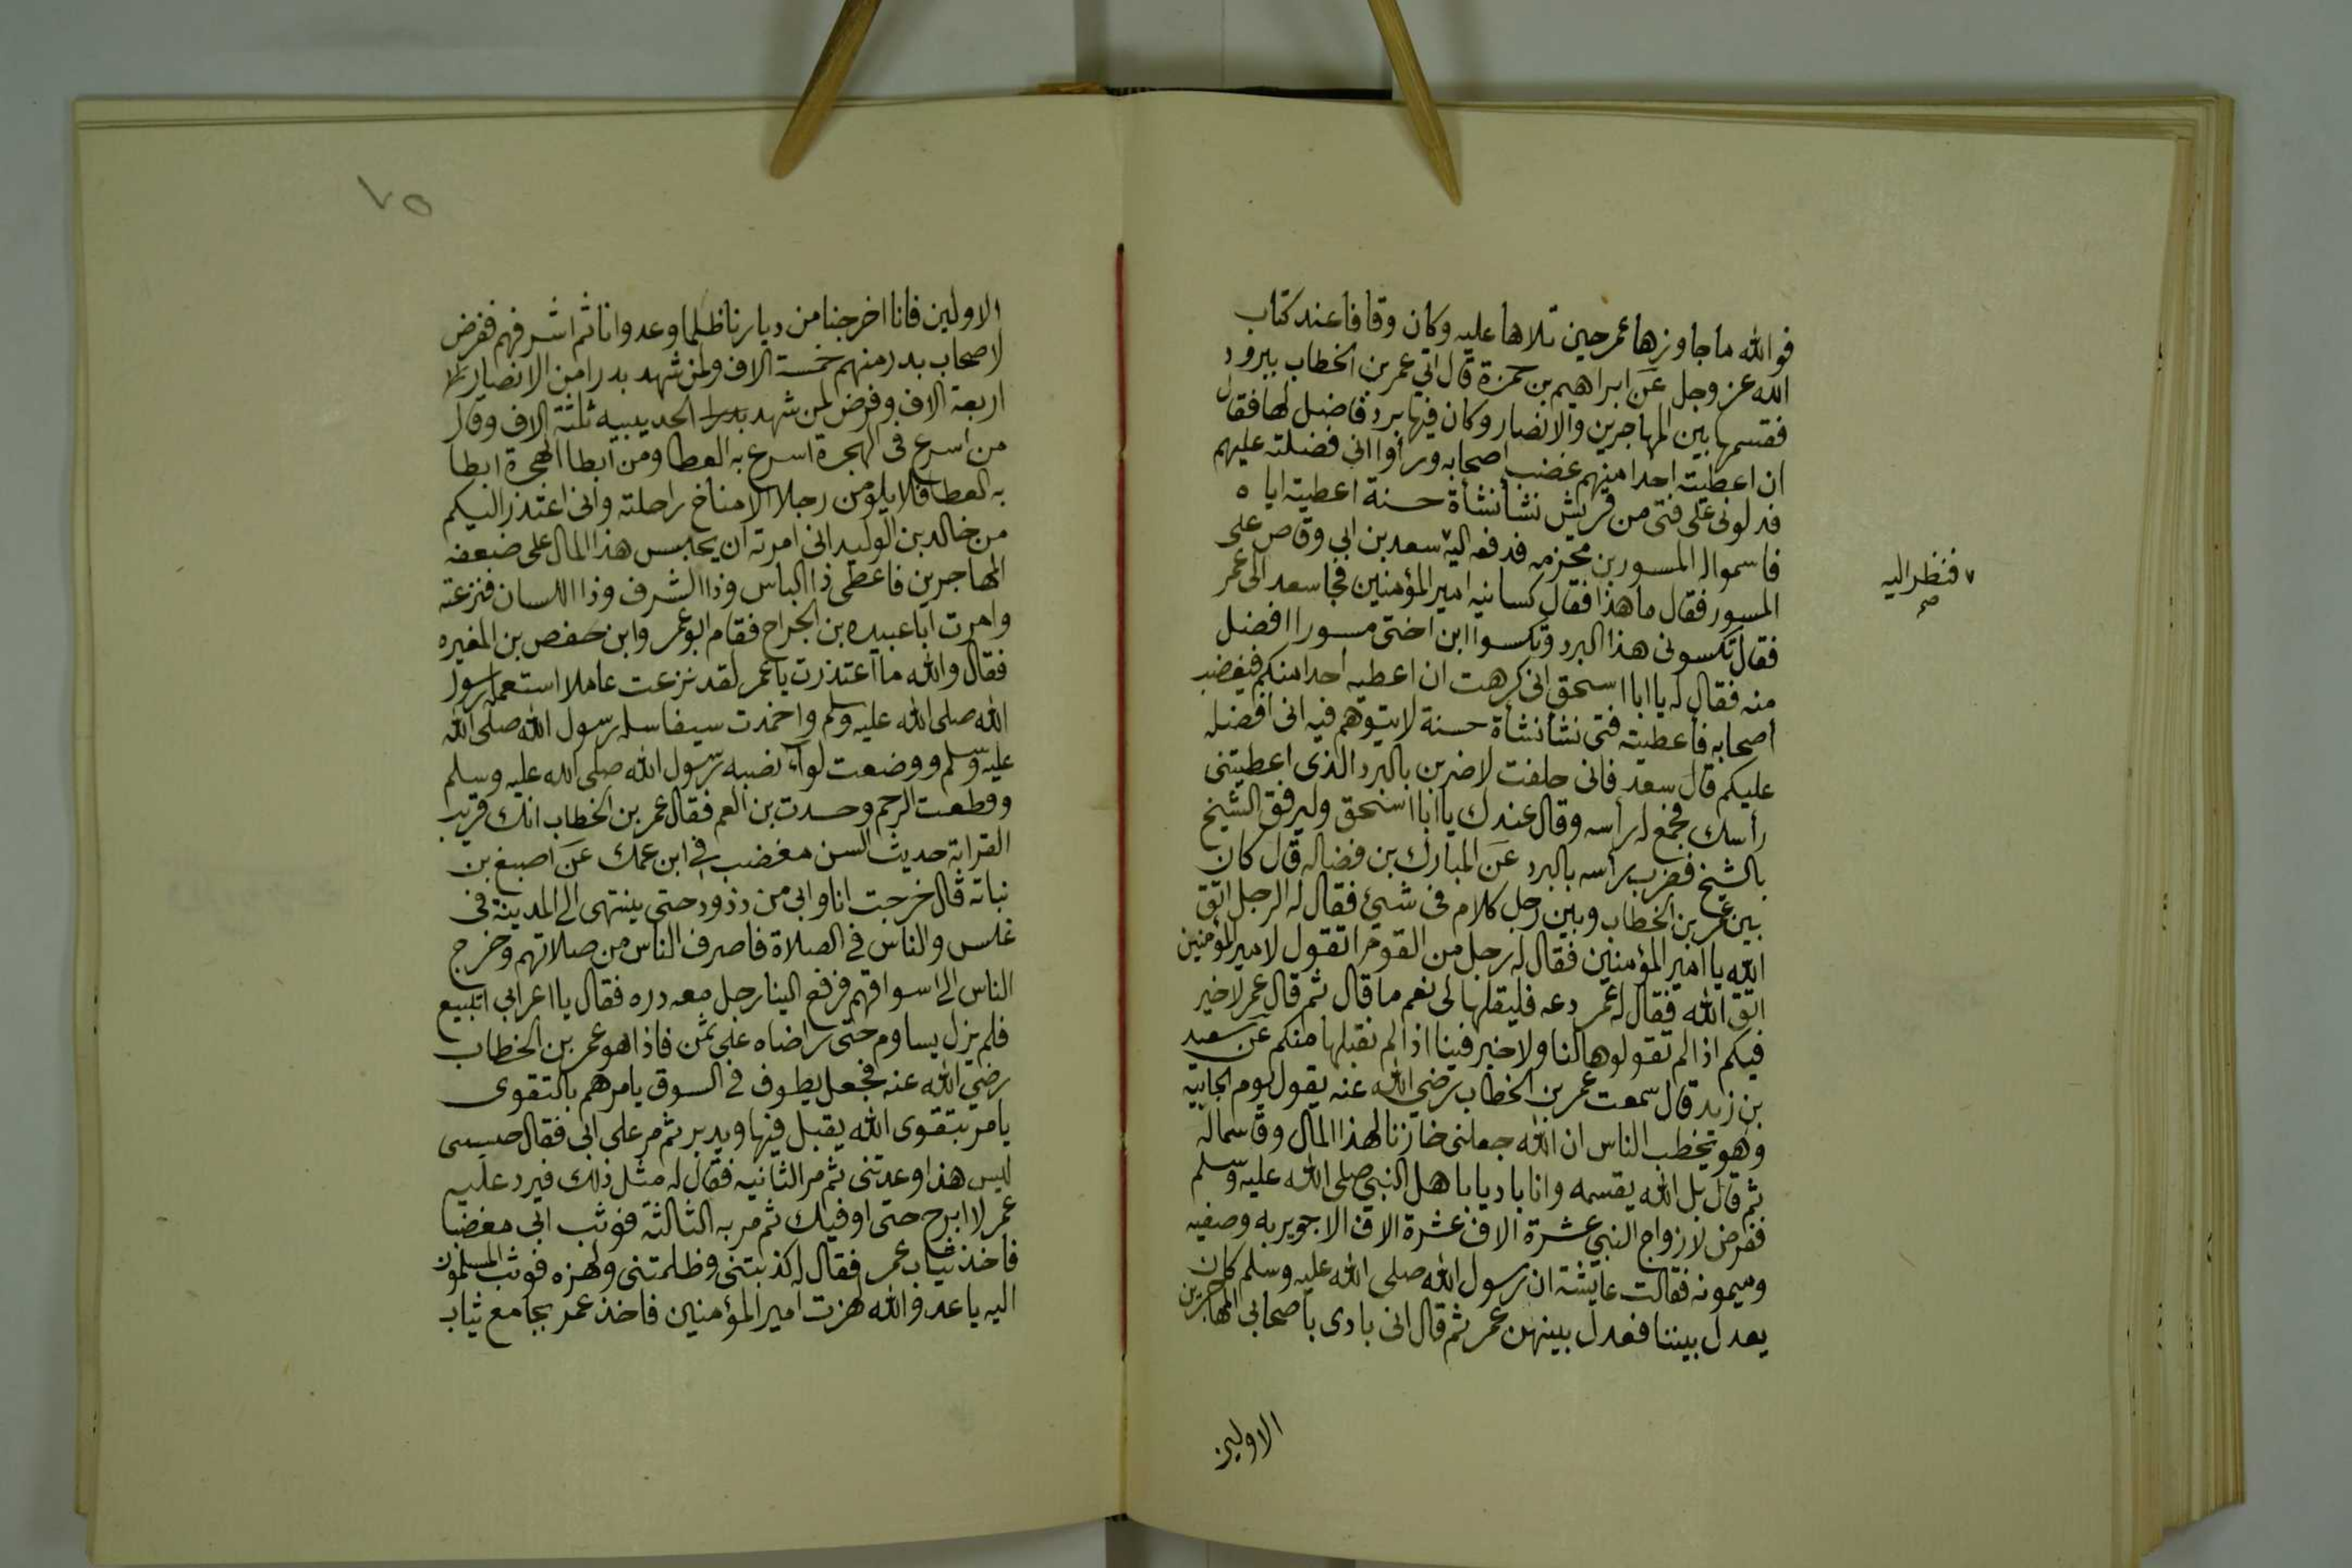 فوالله ماجاوزها عمر حين تلاها عليه وكان وقافا عند كتاب
الله عز وجل عن ابراهيم بن حمزة قال اتي عمر بن الخطاب ببرود
فقسمها بين المهاجرين والانصار وكان فيها برد فاضل لها فقال
ان اعطيته احدا منهم غضب اصحابه ورأوا انى فضلته عليهم
فدلونى على فتى من قريش نشأ نشأة حسنة اعطيته اياه
فاسموا له المسور بن مخرمه فدفعه اليه ٧ سعد بن ابي وقاص على
٧ فنظر اليه
صح
المسور فقال ماهذا فقال كسانيه امير المؤمنين فجا سعد الى عمر
فقال تكسونى هذا البرد وتكسوا ابن اختى مسورا افضل
منه فقال له يا ابا اسحق انى كرهت ان اعطيه احدا منكم فيغضب
اصحابه فأعطيته فتى نشأ نشأة حسنة لا يتوهم فيه انى افضله
عليكم قال سعد فانى حلفت لاضربن بالبرد الذى اعطيتنى
رأسك فجمع له رأسه وقال عندك يا ابا اسحق وليرفق الشيخ
بالشيخ فضرب رأسه بالبرد عن المبارك بن فضاله قال كان
بين عمر بن الخطاب وبين رجل كلام فى شيئ فقال له الرجل اتق
الله يا امير المؤمنين فقال له رجل من القوم اتقول لامير المؤمنين
اتق الله فقال له عمر دعه فليقلها لى نعم ما قال ثم قال عمر لا خير
فيكم اذا لم تقولوها لنا ولا خير فينا اذا لم نقبلها منكم عن سعيد
بن زيد قال سمعت عمر بن الخطاب رضي الله عنه يقول يوم الجابيه
وهو يخطب الناس ان الله جعلنى خازنا لهذا المال وقاسما له
ثم قال بل الله يقسمه وانا باد يا باهل النبي صلى الله عليه وسلم
ففرض لازواج النبي عشرة الاف عشرة الاف الا جويريه وصفيه
وميمونه فقالت عايشة ان رسول الله صلى الله عليه وسلم كان
يعدل بيننا فعدل بينهن عمر ثم قال انى بادى باصحابي المهاجرين
الاولين
٧٥
الاولين فانا اخرجنا من ديارنا ظلما وعدوانا ثم اشرفهم ففرض
لاصحاب بدر منهم خمسة الاف ولمن شهد بدرا من الانصار
اربعة الاف وفرض لمن شهد بدرا الحديبيه ثلثة الاف وقال
من اسرع فى الهجرة اسرع به العطا ومن ابطا الهجرة ابطا
به العطا فلا يلومن رجلا الا مناخ راحلته وانى اعتذر اليكم
من خالد بن الوليد انى امرته ان يحابس هذا المال على ضعفه
المهاجرين فاعطى ذا الباس وذا الشرف وذا اللسان فنزعته
وامرت ابا عبيده بن الجراح فقام ابو عمر وابن حفص بن المغيره
فقال والله ما اعتذرت يا عمر لقد نزعت عاملا استعمله رسول
الله صلى الله عليه وسلم واخمدت سيفا سله رسول الله صلى الله
عليه وسلم ووضعت لواء نصبه رسول الله صلى الله عليه وسلم
وقطعت الرحم وحسدت بن العم فقال عمر بن الخطاب انك قريب
القرابه حديث السن مغضب في ابن عمك عن اصبغ بن
نباته قال خرجت انا وابى من ذذود حتى ينتهى الى المدينة فى
غلس والناس في الصلاة فاصرف الناس من صلاتهم وخرج
الناس الى اسواقهم فرفع الينا رجل معه دره فقال يا اعرابى اتبيع
فلم يزل يساوم حتى راضاه على ثمن فاذا هو عمر بن الخطاب
رضي الله عنه فجعل يطوف في السوق يامرهم بالتقوى
يامر بتقوى الله يقبل فيها ويدبر ثم مر على ابى فقال حبستى
ليس هذا وعدتنى ثم مر الثانيه فقال له مثل ذلك فيرد عليه
عمر لا ابرح حتى اوفيك ثم مر به الثالثة فوثب ابى مغضبا
فاخذ ثياب عمر فقال له كذبتنى وظلمتنى ولهزه فوثب المسلمون
اليه يا عدو الله لهزت امير المؤمنين فاخذ عمر بجامع ثياب